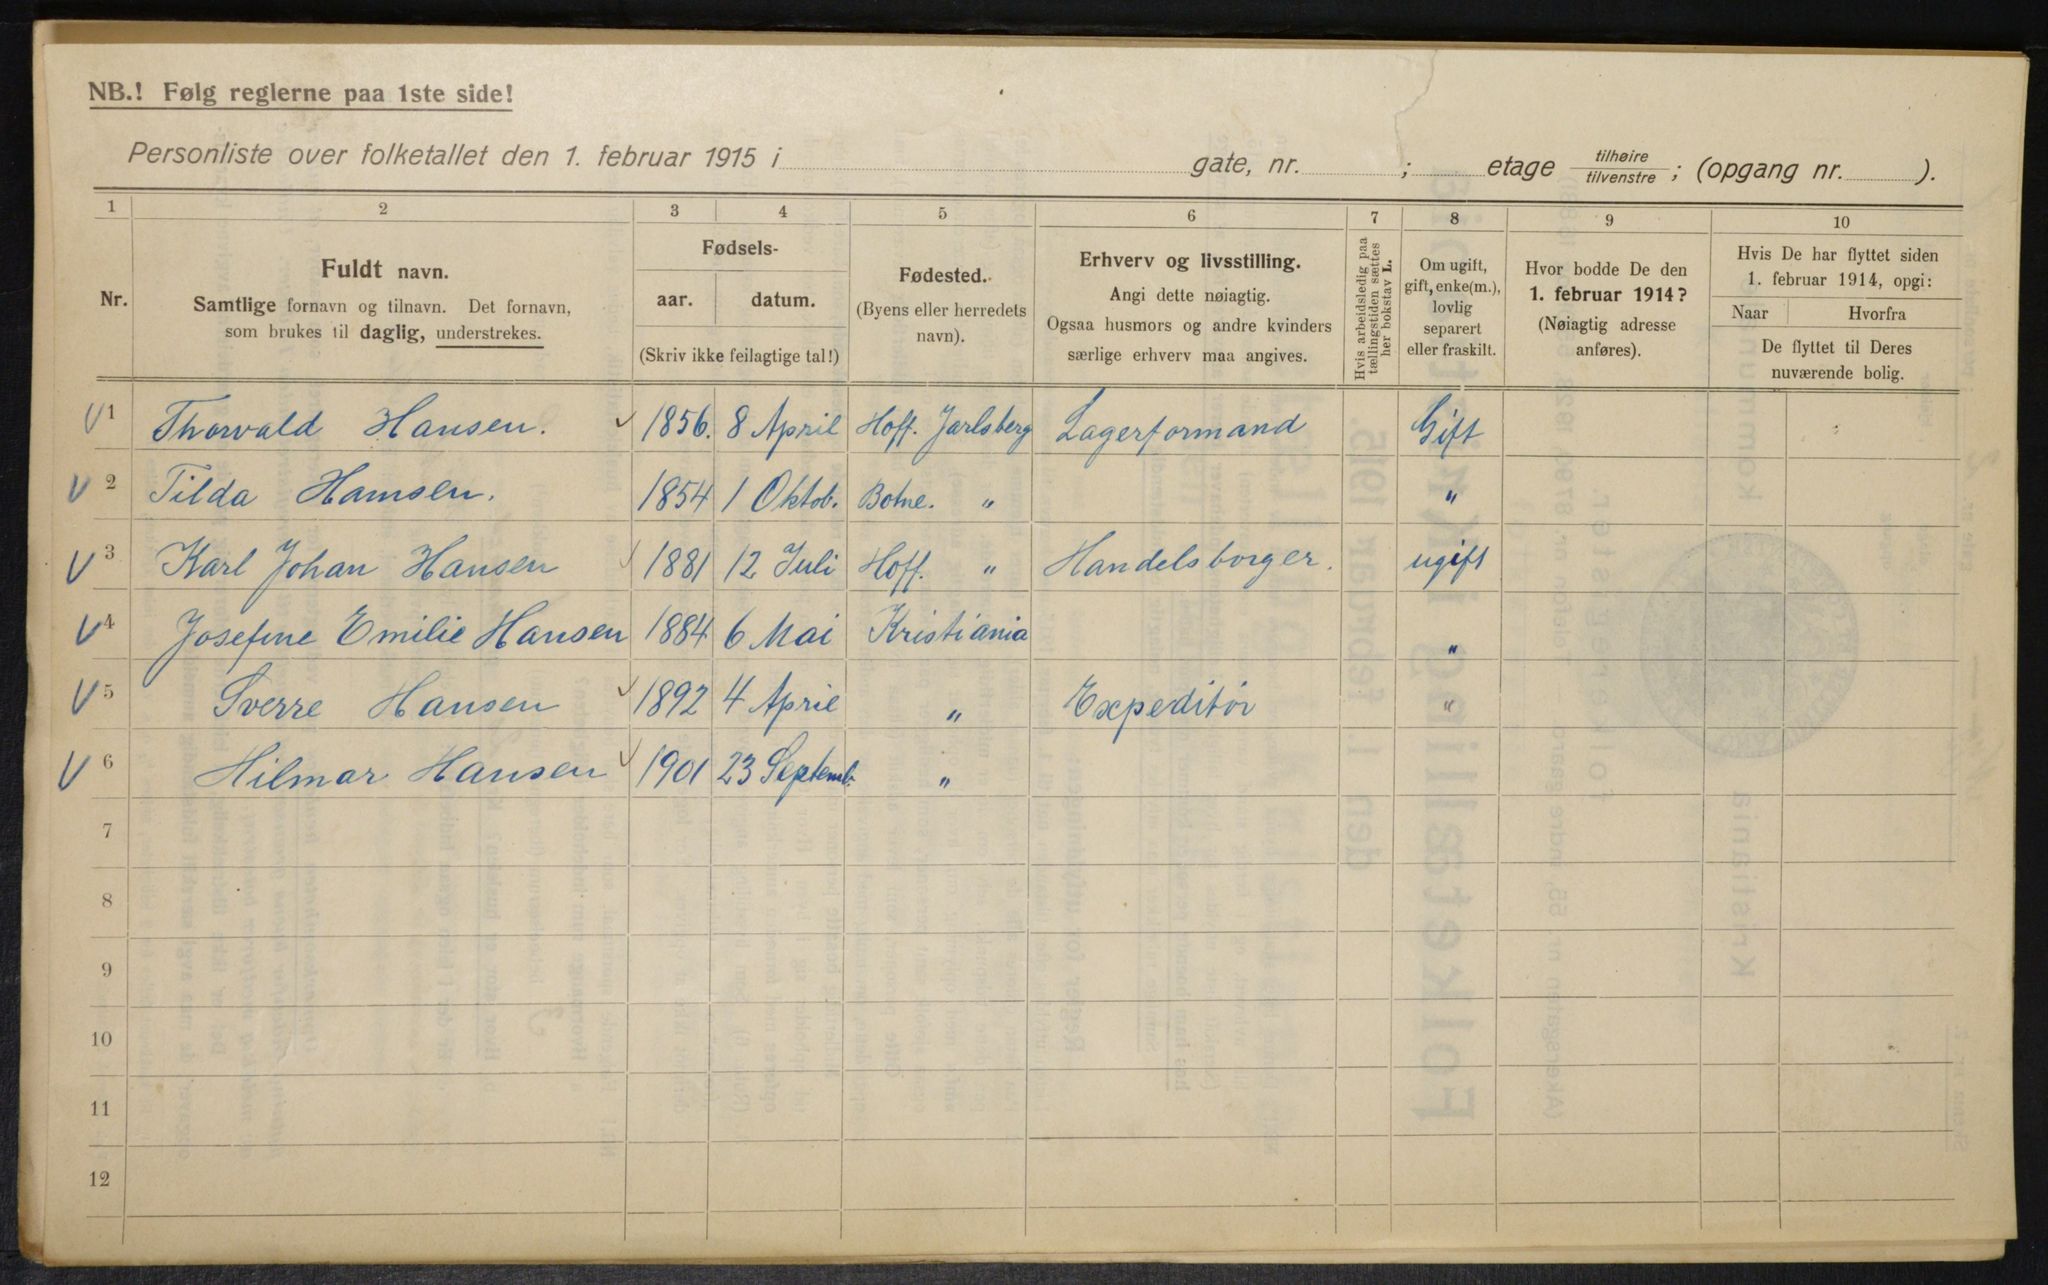 NB.! Følg reglerne paa 1ste side!
Personliste over folketallet den 1. februar 1915 i gate, nr. ; etage tilhøire tilvenstre ; (opgang nr. ).
1 2 3 4 5 6 7 8 9 10
Nr.
Fuldt navn.
Samtlige fornavn og tilnavn. Det fornavn,
som brukes til daglig, understrekes.
Fødsels-
aar. datum.
(Skriv ikke feilagtige tal!)
Fødested.
(Byens eller herredets
navn).
Erhverv og livsstilling.
Angi dette nøiagtig.
Ogsaa husmors og andre kvinders
særlige erhverv maa angives.
Hvis arbeidsledig paa
tællingstiden sættes
her bokstav L.
Om ugift,
gift, enke(m.),
lovlig
separert
eller fraskilt.
Hvor bodde De den
1. februar 1914?
(Nøiagtig adresse
anføres).
Hvis De har flyttet siden
1. februar 1914, opgi:
Naar Hvorfra
De flyttet til Deres
nuværende bolig.
1 Thorvald Hansen. 1856. 8 April Hoff. Jarlsberg Lagerformand Gift
2 Tilda Hansen. 1854 1 Oktob. Botne. " "
3 Karl Johan Hansen 1881 12 Juli Hoff. " Handelsborger. ugift
4 Josefine Emilie Hansen 1884 6 Mai Kristiania "
5 Sverre Hansen 1892 4 April " Expeditør "
6 Hilmar Hansen 1901 23 Septemb. "
7
8
9
10
11
12